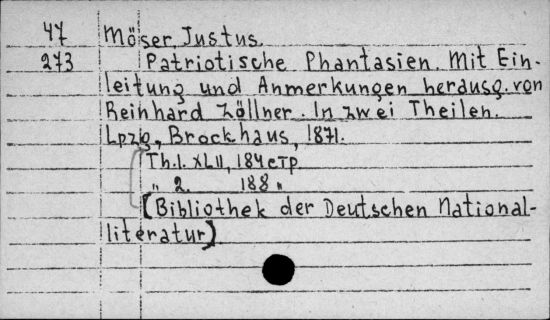 47 Möser, Justus.
273 Patriotische Phantasien. Mit Ein-
leitung und Anmerkungen herausg. von
Reinhard Zöllner. In zwei Theilen.
Lpzg., Brockhaus, 1871.
Th. 1. XLII, 184 стр.
" 2. 188 "
(Bibliothek der Deutschen National-
literatur)